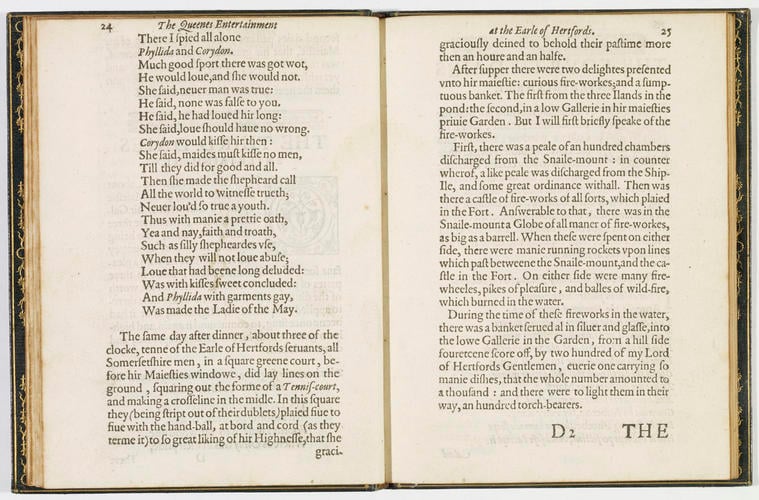 24 The Queenes Entertainment
There I ſpied all alone
Phyllida and Corydon.
Much good ſport there was got wot,
He would loue,and ſhe would not.
She ſaid,neuer man was true:
He ſaid, none was falſe to you.
He ſaid, he had loued hir long:
She ſaid,loue ſhould haue no wrong.
Corydon would kiſſe hir then:
She ſaid, maides muſt kiſſe no men,
Till they did for good and all.
Then ſhe made the ſhepheard call
All the world to witneſſe trueth,
Neuer lou'd ſo true a youth.
Thus with manie a prettie oath,
Yea and nay,faith and troath,
Such as ſilly ſhepheardes vſe,
When they will not loue abuſe;
Loue that had beene long deluded:
Was with kiſſes ſweet concluded:
And Phyllida with garments gay,
Was made the Ladie of the May.
The ſame day after dinner, about three of the
clocke, tenne of the Earle of Hertfords ſeruants, all
Somerſetſhire men, in a ſquare greene court, be-
fore hir Maieſties windowe, did lay lines on the
ground, ſquaring out the forme of a Tenniſ-court,
and making a croſſeline in the midle. In this ſquare
they (being ſtript out of their dublets) plaied fiue to
fiue with the hand-ball, at bord and cord (as they
terme it) to ſo great liking of hir Highneſſe, that ſhe
graci-
at the Earle of Hertfords. 25
graciouſly deined to behold their paſtime more
then an houre and an halfe.
After ſupper there were two delightes preſented
vnto hir maieſtie: curious fire-workes;and a ſump-
tuous banket. The firſt from the three Ilands in the
pond: the ſecond,in a low Gallerie in hir maieſties
priuie Garden. But I will firſt briefly ſpeake of the
fire-workes.
Firſt, there was a peale of an hundred chambers
diſcharged from the Snaile-mount: in counter
wherof, a like peale was diſcharged from the Ship-
Ile, and ſome great ordinance withall. Then was
there a caſtle of fire-workes of all ſorts, which plaied
in the Fort. Anſwerable to that, there was in the
Snaile-mount a Globe of all maner of fire-workes,
as big as a barrell. When theſe were ſpent on either
ſide, there were manie running rockets vpon lines
which paſt betweene the Snaile-mount,and the ca-
ſtle in the Fort. On either ſide were many fire-
wheeles, pikes of pleaſure, and balles of wild-fire,
which burned in the water.
During the time of theſe fireworks in the water,
there was a banket ſerued al in ſiluer and glaſſe,into
the lowe Gallerie in the Garden, from a hill ſide
foureteene ſcore off, by two hundred of my Lord
of Hertfords Gentlemen, euerie one carrying ſo
manie diſhes, that the whole number amounted to
a thouſand: and there were to light them in their
way, an hundred torch-bearers.
D2 THE